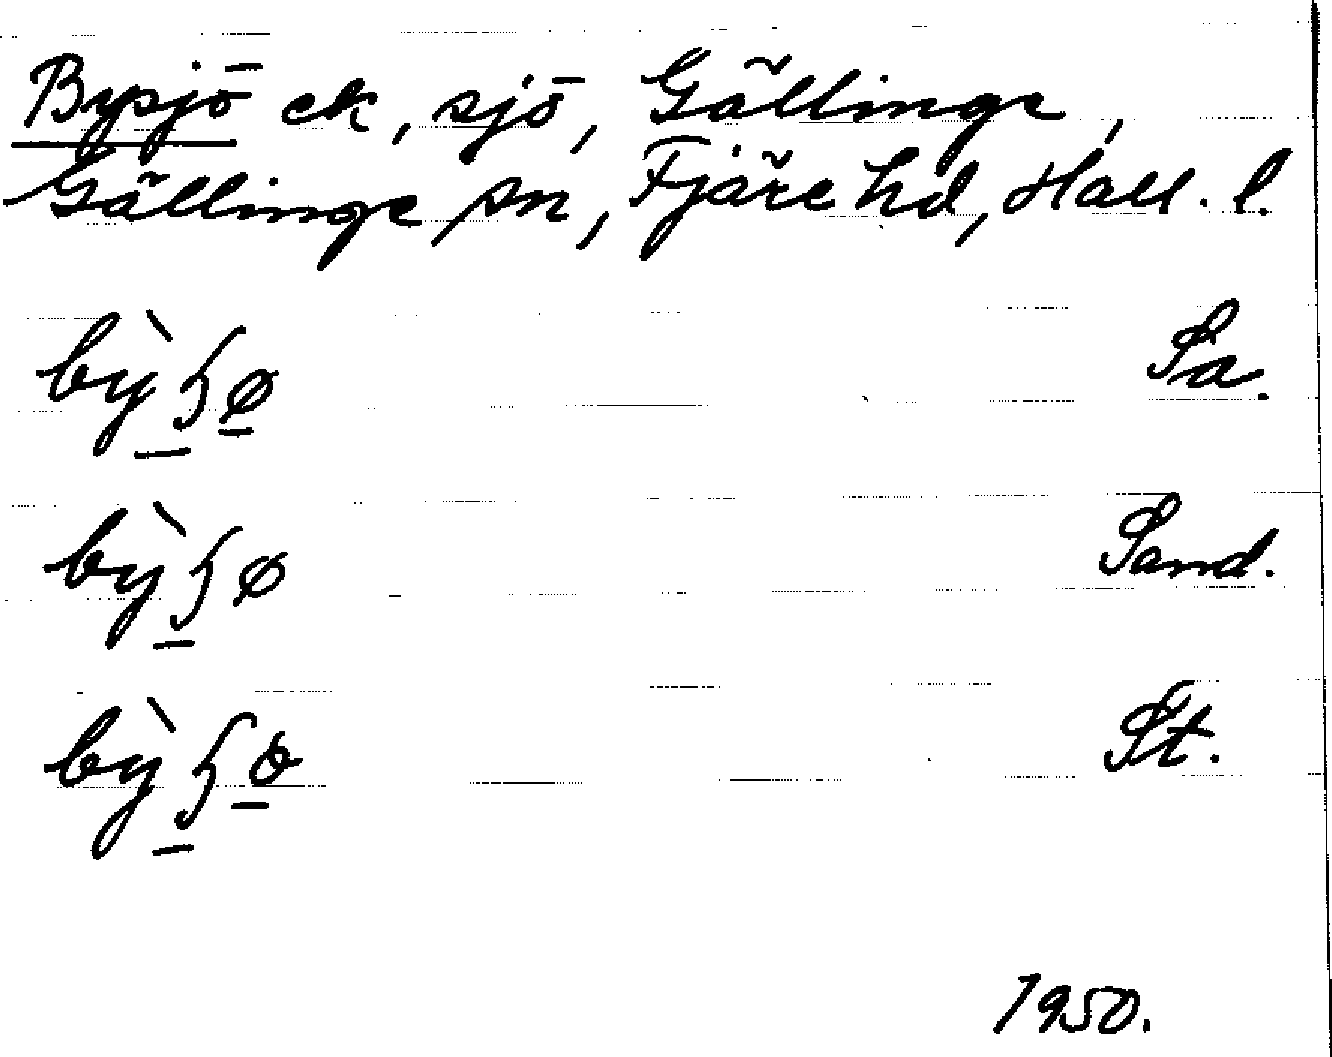 Bysjö ek, sjö, Gällinge,
Gällinge sn, Fjäre hd, Hall. l.
Sa.
Sand.
St.
1950.